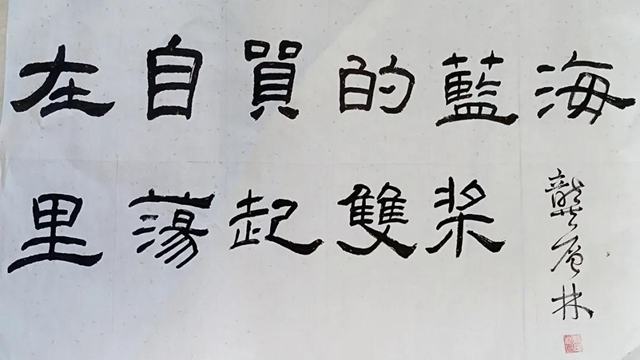 在自貿的藍海
里蕩起雙桨
龔 林